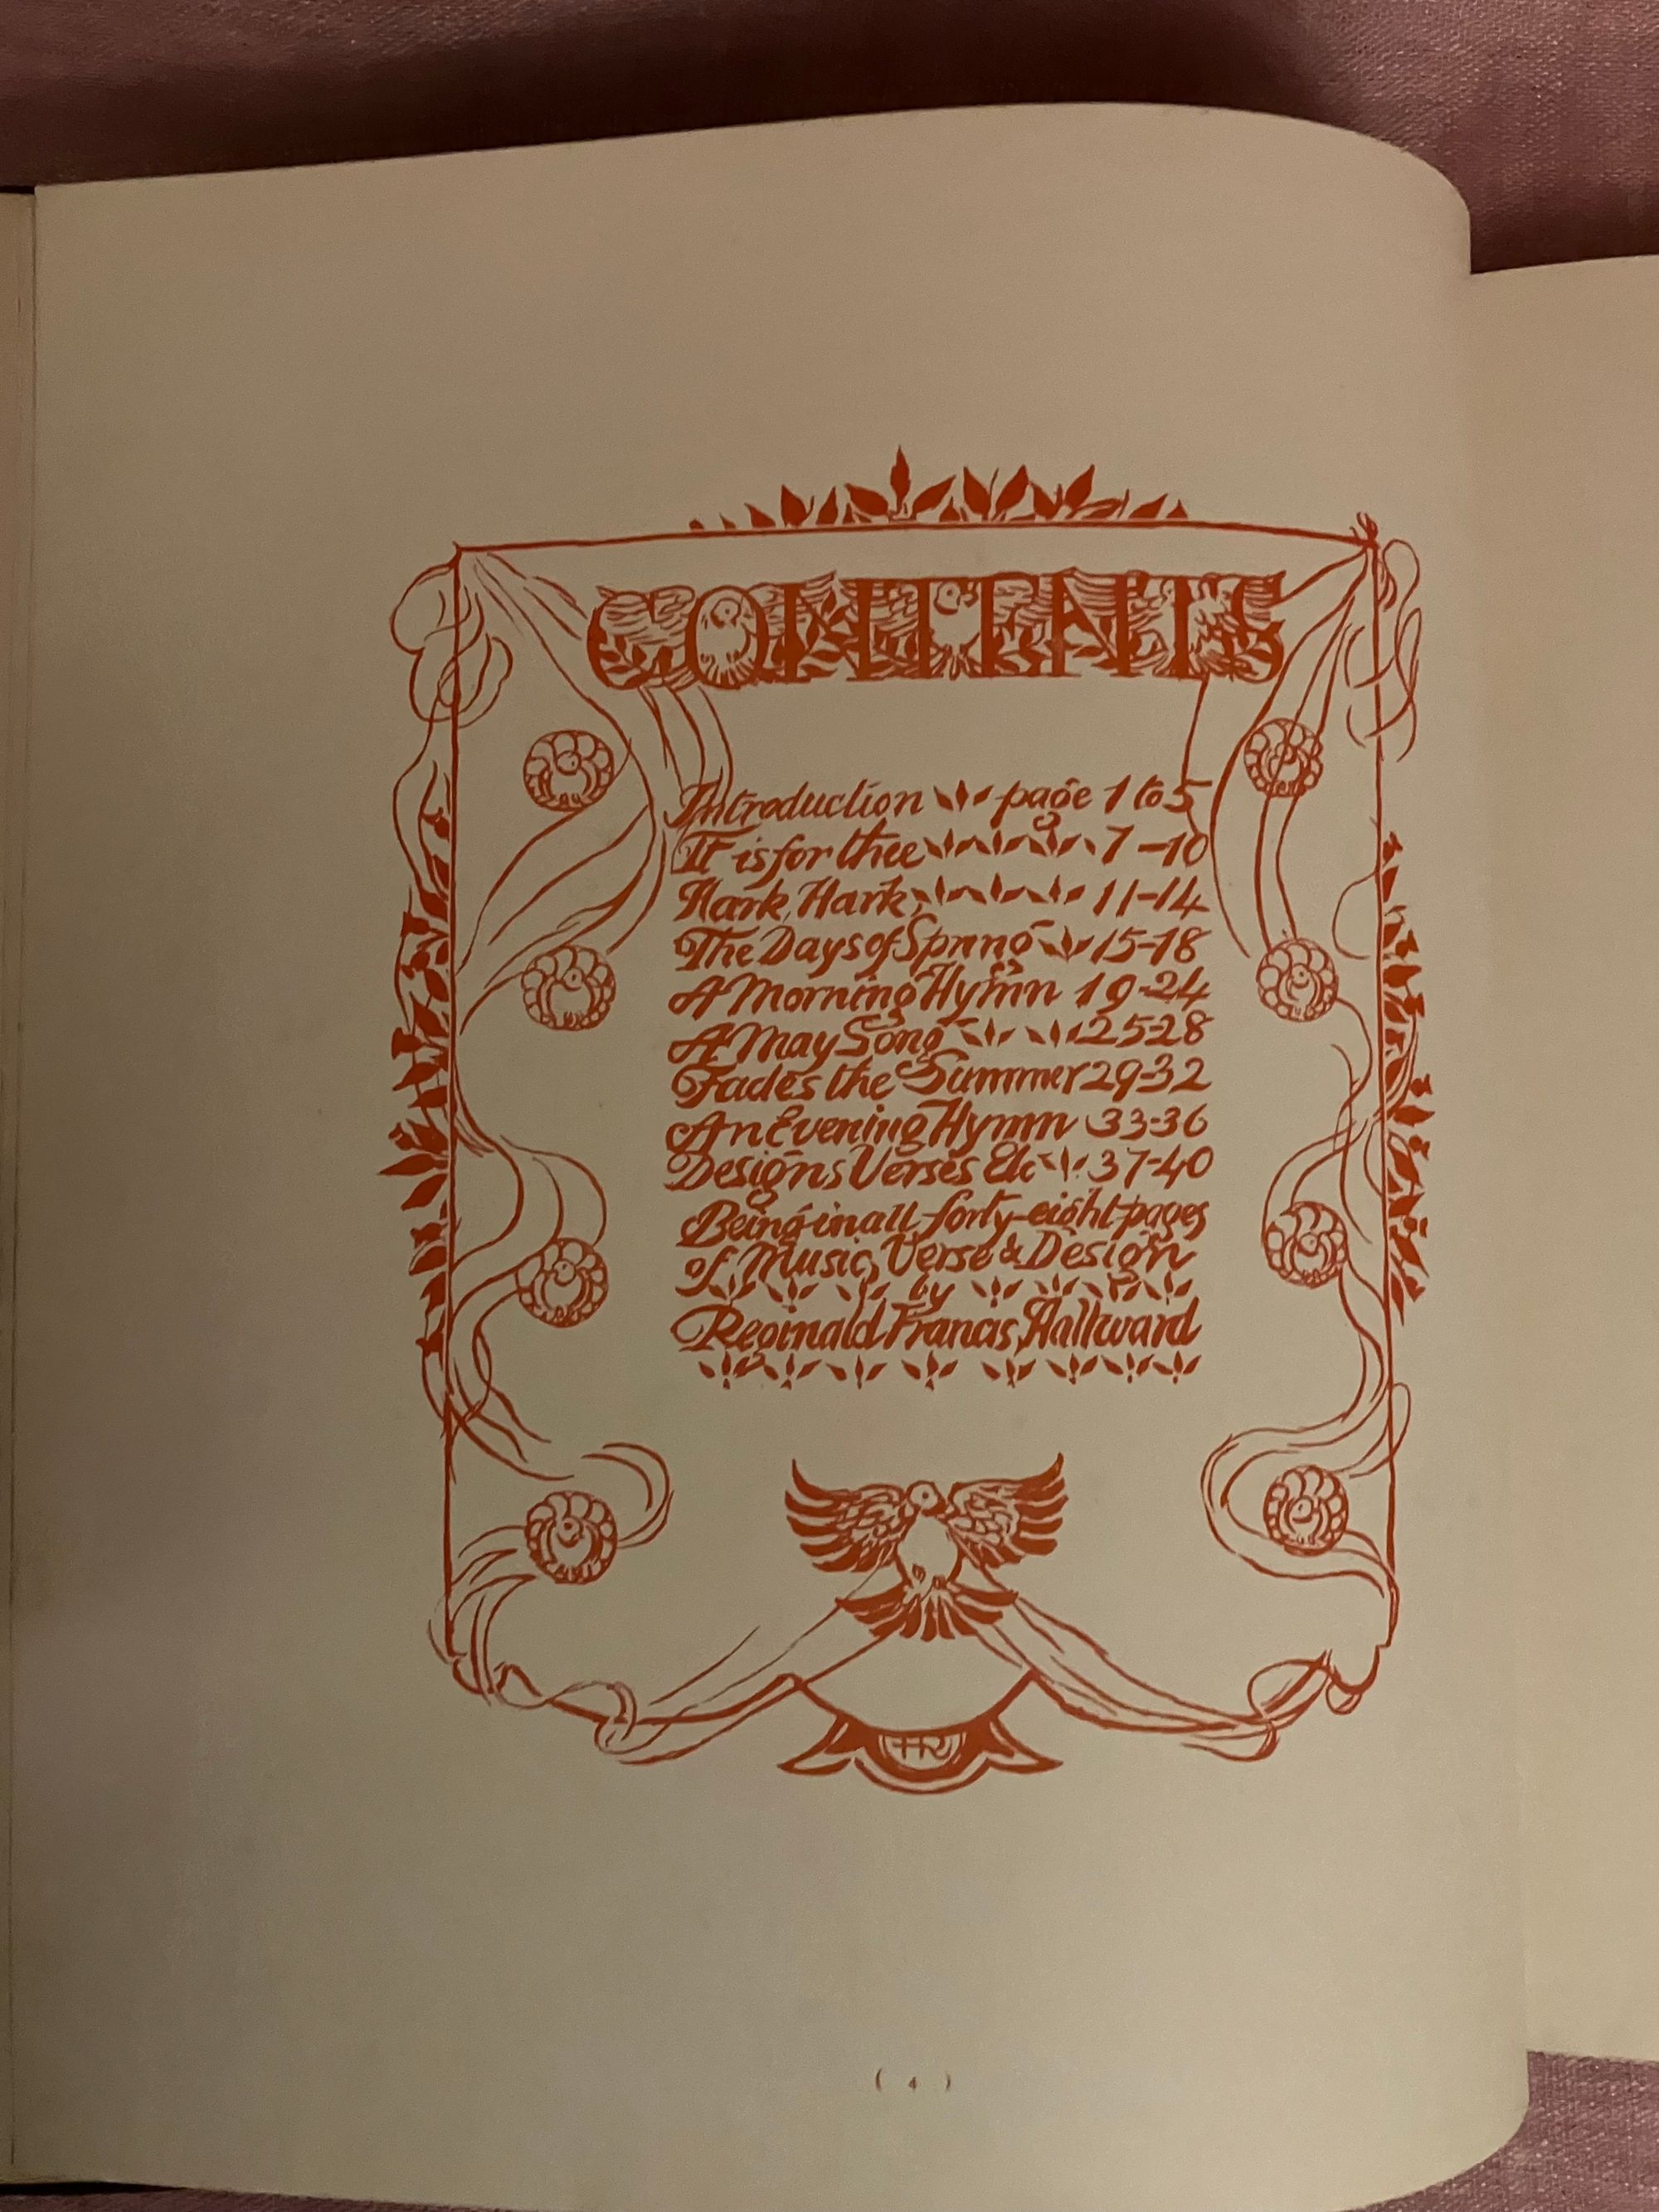 CONTENTS
Introduction page 1 to 5
It is for thee 7-10
Hark, Hark, 11-14
The Days of Spring 15-18
A Morning Hymn 19-24
A May Song 25-28
Fades the Summer 29-32
An Evening Hymn 33-36
Designs Verses Etc 37-40
Being in all forty-eight pages
of Music, Verse & Design
by
Reginald Francis Hallward
HR
( 4 )